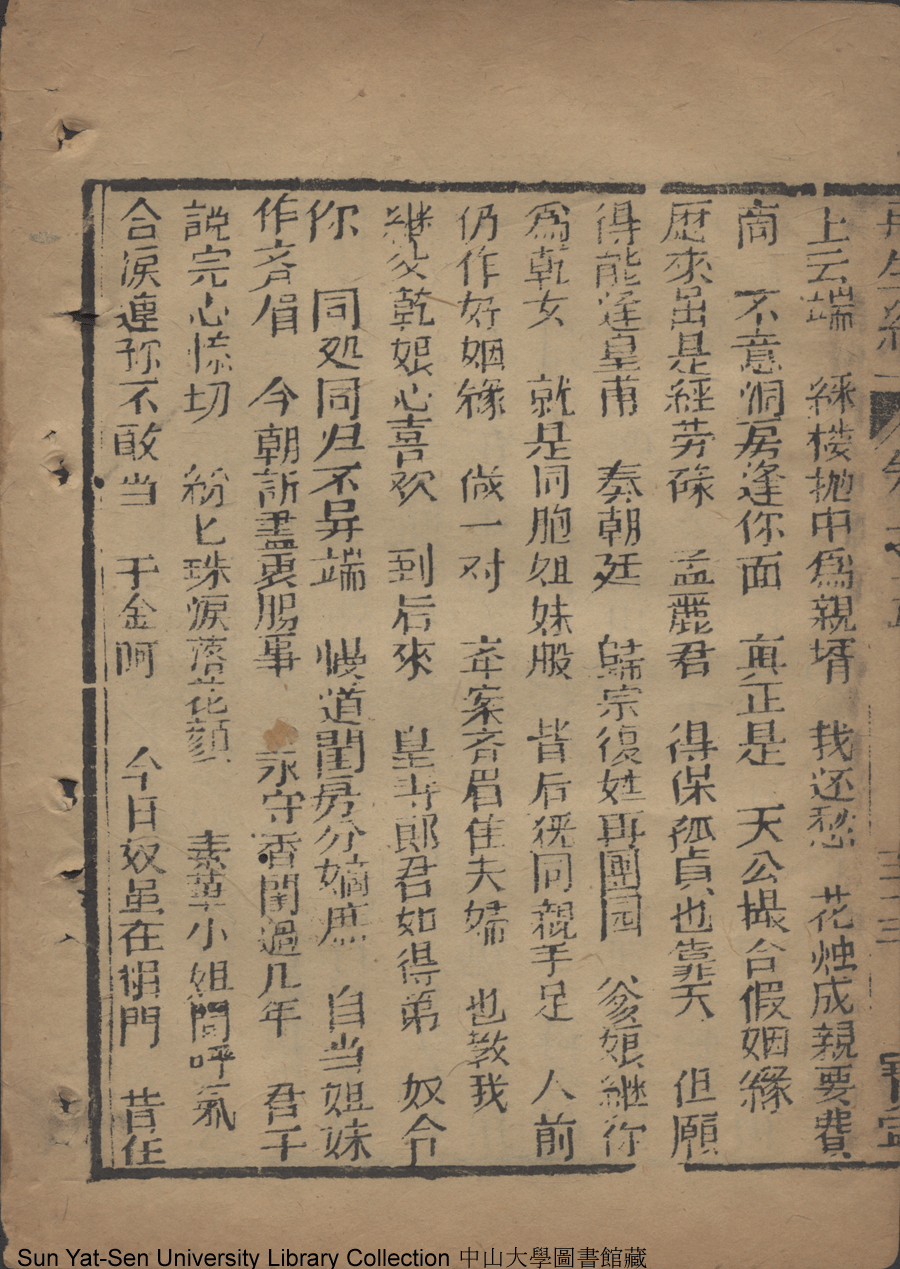 再生緣
三十三
上云端　綵楼抛中爲親壻　我还愁　花烛成親要費
商　不意洞房逢你面　真正是　天公撮合假姻緣
歴來出是經劳碌　孟麗君　得保孤貞也靠天　但願
得能逢皇甫　奏朝廷　歸宗復姓再團园　爹娘継你
爲乾女　就是同胞姐妹般　背后犹同親手足　人前
仍作好姻緣　做一对　斉眉隹夫婦　也教我
継父乾娘心喜欢　到后來　皇甫郎君如得弟　奴合
你　同処同归不异端　慢道閨房分嫡庶　自当姐妹
作斉眉　今朝訴盡衷腸事　永守香閨過几年　君千
説完心惨切　紛匕珠淚落花顔　素華小姐闻呼氣
合淚連称不敢当　千金呵　今日奴虽在相門　昔在
Sun Yat-Sen University Library Collection 中山大學圖書館藏